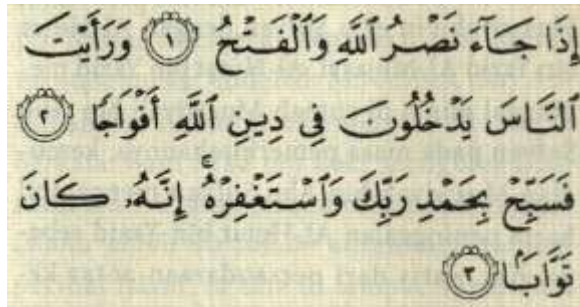 إِذَا جَآءَ نَصْرُ ٱللَّهِ وَٱلْفَتْحُ ١ وَرَأَيْتَ
ٱلنَّاسَ يَدْخُلُونَ فِى دِينِ ٱللَّهِ أَفْوَاجًا ٢
فَسَبِّحْ بِحَمْدِ رَبِّكَ وَٱسْتَغْفِرْهُ ۚ إِنَّهُۥ كَانَ
تَوَّابًۢا ٣